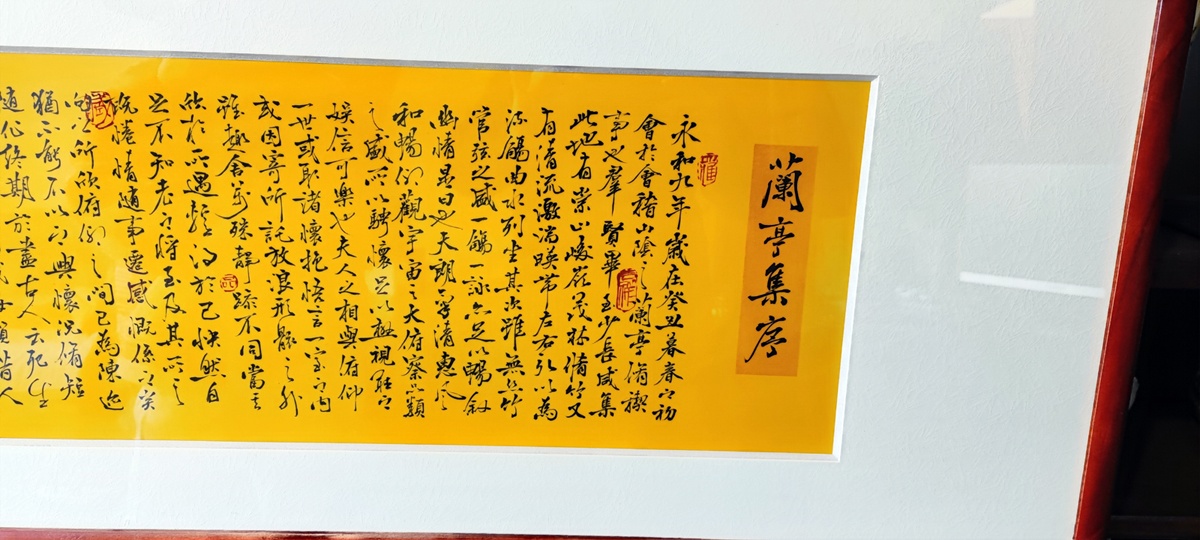 蘭亭集序
永和九年歲在癸丑暮春之初
會於會稽山陰之蘭亭脩禊
事也羣賢畢至少長咸集
此地有崇山峻嶺茂林脩竹又
有清流激湍暎帶左右引以為
流觴曲水列坐其次雖無絲竹
管弦之盛一觴一詠亦足以暢敘
幽情是日也天朗氣清惠風
和暢仰觀宇宙之大俯察品類
之盛所以騁懷足以極視聽之
娛信可樂也夫人之相與俯仰
一世或取諸懷抱悟言一室之內
或因寄所託放浪形骸之外
雖趣舍萬殊靜躁不同當其
欣於所遇暫得於己快然自
足不知老之將至及其所之
既惓情隨事遷感慨係之矣
向之所欣俯仰之間已為陳迹
猶不能不以之興懷況脩短
隨化終期於盡古人云死生